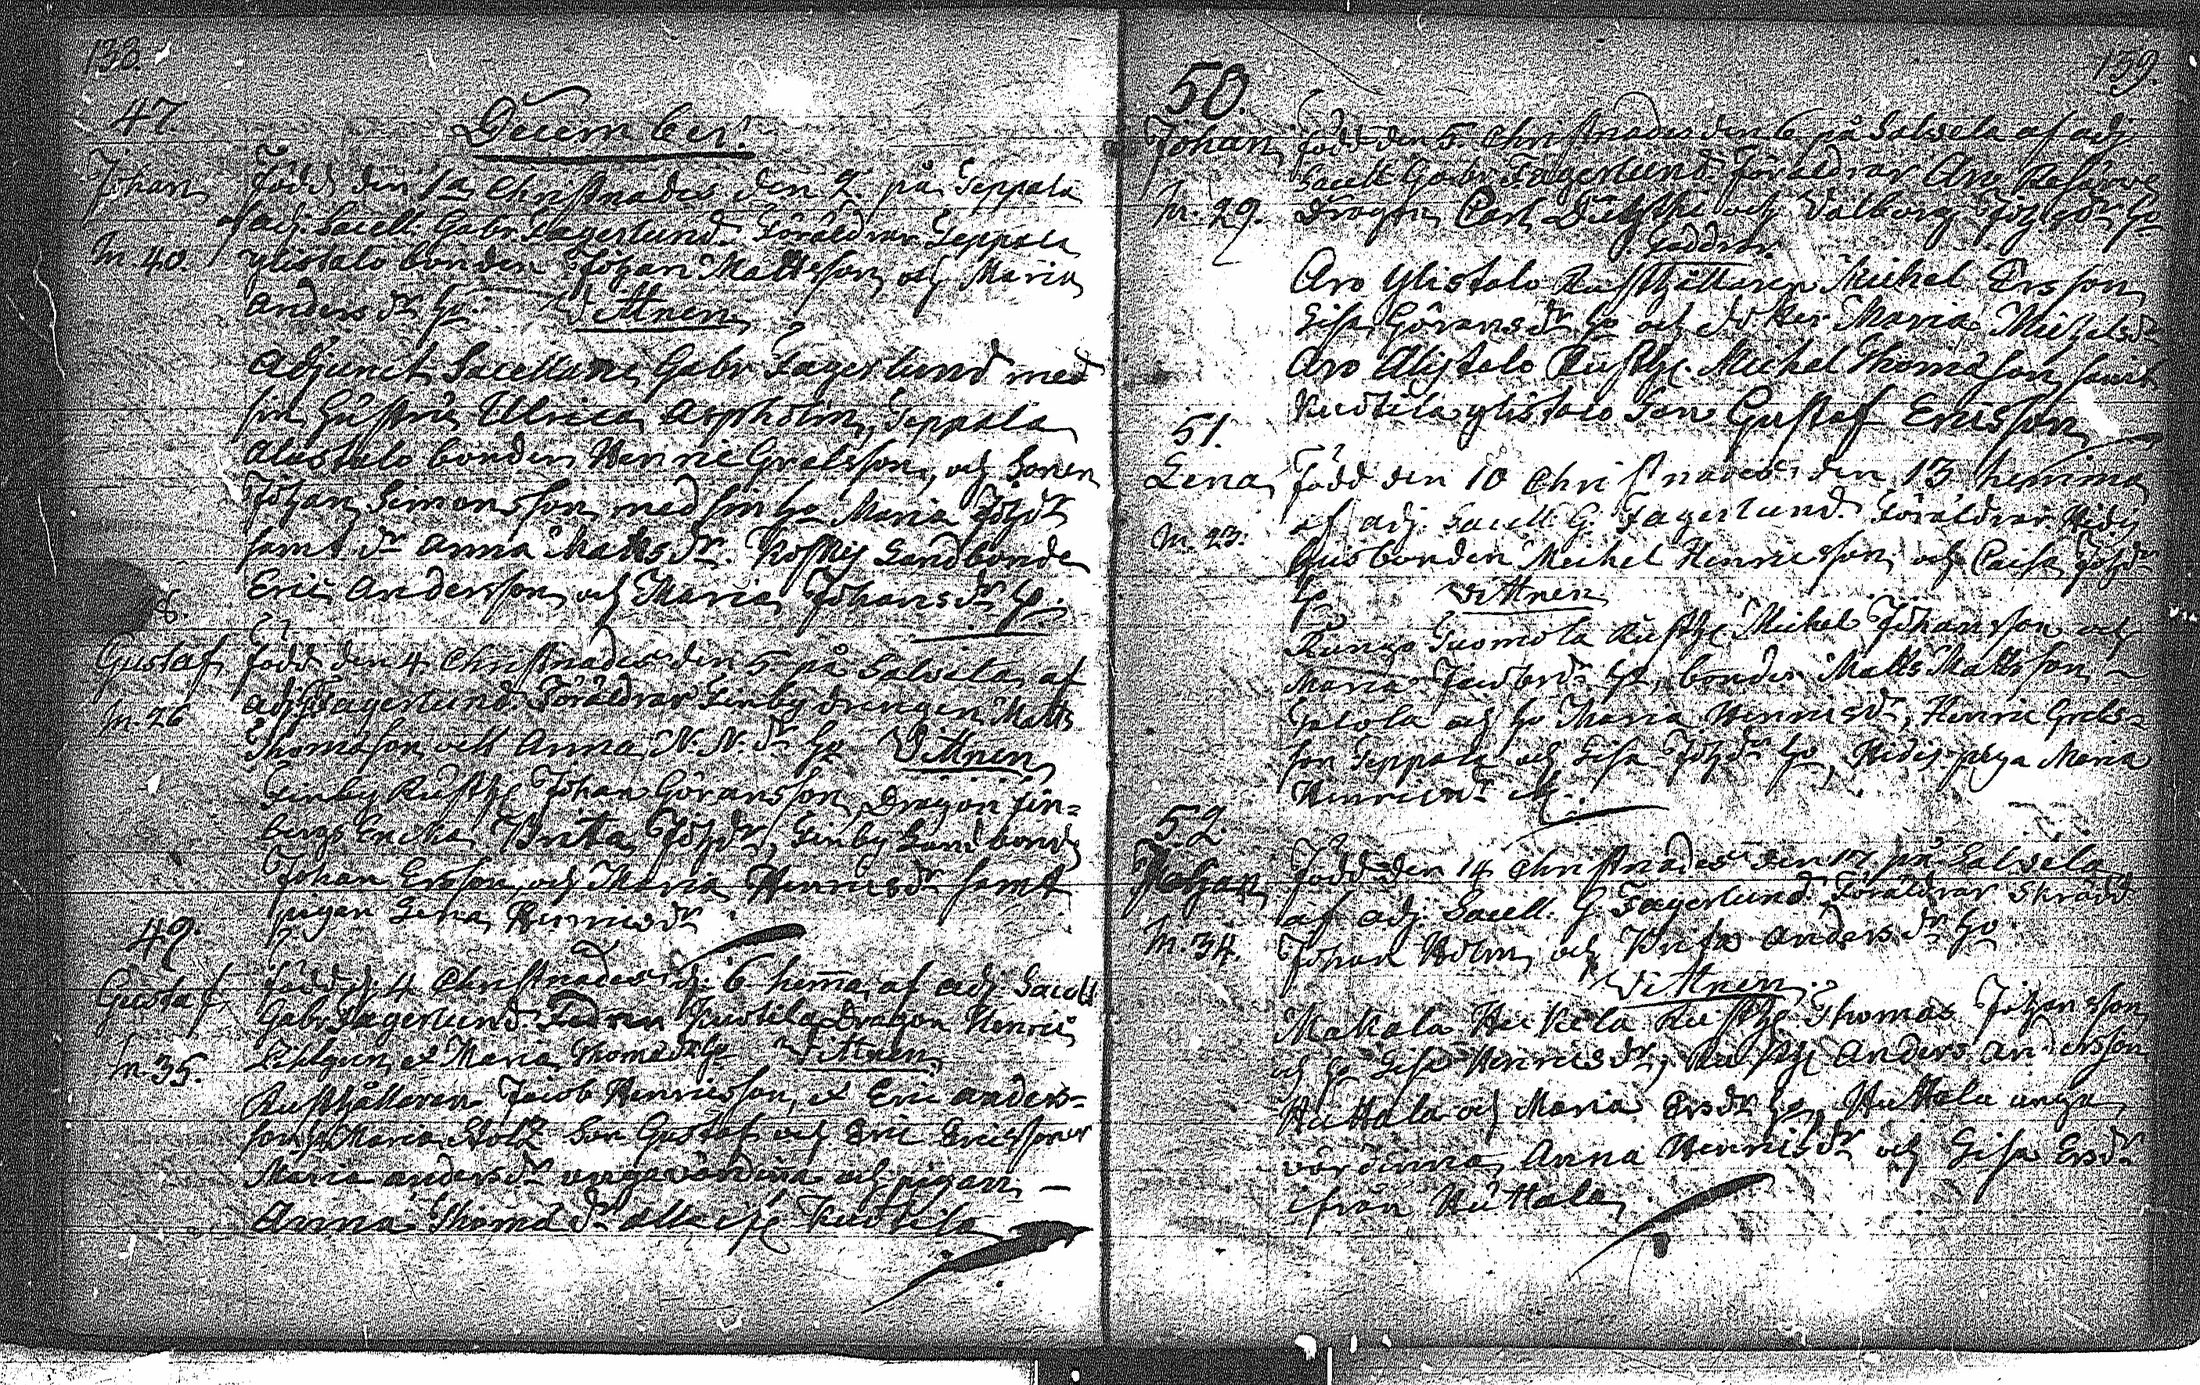 138.
47.
December.
Johan
m. 40.
Född den 1a Christnades den 2. på Seppala
af adj. Sacell. Gabr. Fagerlund. Föräldrar Seppala
ylistalo bonden Johan Mattsson och Maria
Anders dr ho. Vittnen
Adjunct Sacellane Gabr Fagerlund med
sin hustru Ulrica Aspholm, Seppala
Alistalo bonden Henric Grelsson, och Sonen
Johan Simonsson med sin ho Maria Johdr
samt dr Anna Matts dr. Koskis Landbonde
Eric Andersson och Maria Johans dr ho.
8
Gustaf
m. 26
Född den 4 Christnades den 5 på Salvela af
adj Fagerlund. Föräldrar Finby drengen Matts
Thomasson och Anna N. N. dr ho Vittnen
Finby Rusth Johan Göransson, Dragon Fin-
bergs Brita Johdr, Finby Landbonde
Johan Ersson och Maria Henricsdr samt
pigan Lena Henricsdr.
49.
Gustaf
m. 35.
född d. 4 Christnades d. 6 hema af adj Sacell
Gabr Fagerlund. Kustila Dragon Henric
et Maria Thomædr ho Vittnen
Rusthållaren Jacob Henricsson, et Eric Anders-
son, Maria Stolz Son Gustaf och Eric Ericssoner
Maria Anders dr unga värdinna och pigan
Anna Thomæ dr alla
159.
50.
Johan
m. 29.
född den 5. Christnades den 6 på Salvela af adj
Sacell Gabr. Fagerlund. Föräldrar Aro Reserve
Dragon Carl och Valborg Johs dr ho
Faddrar.
Aro Ylistalo Rusthållaren Michel Ersson
Lisa Görans dr ho och dotter Maria Michelsdr
Aro Alistalo Rusth. Michel Thomasson samt
ylistalo Son Gustaf Ericsson
51.
Lena
m. 23.
Född den 10 Christnades den 13 hemma
af adj. Sacell. G. Fagerlund. Föräldrar
bonden Michel Henricsson och Caisa Johdr
ho Vittnen
Rusth Michel Johansson och
Maria Jacobs dr ho, bonden Matts Mattsson
och ho Maria Henricsdr, Henric Grels-
son Seppala och Lisa Johdr ho, piga Maria
Henricsdr
52.
Johan
m. 34.
Född den 14 Christnades den 17 på Salvela
af adj. Sacell. G. Fagerlund. Föräldrar Skrädd
Johan Holm och Anders dr ho
Vittnen.
Makala Heikila Rusth. Thomas Johansson
och ho Lisa Henricsdr, Rusth Anders Andersson
Huttala och Maria Ersdr ho, Huttala unga
värdinna Anna Henricsdr och Lisa Ersdr
ifrån Huttala